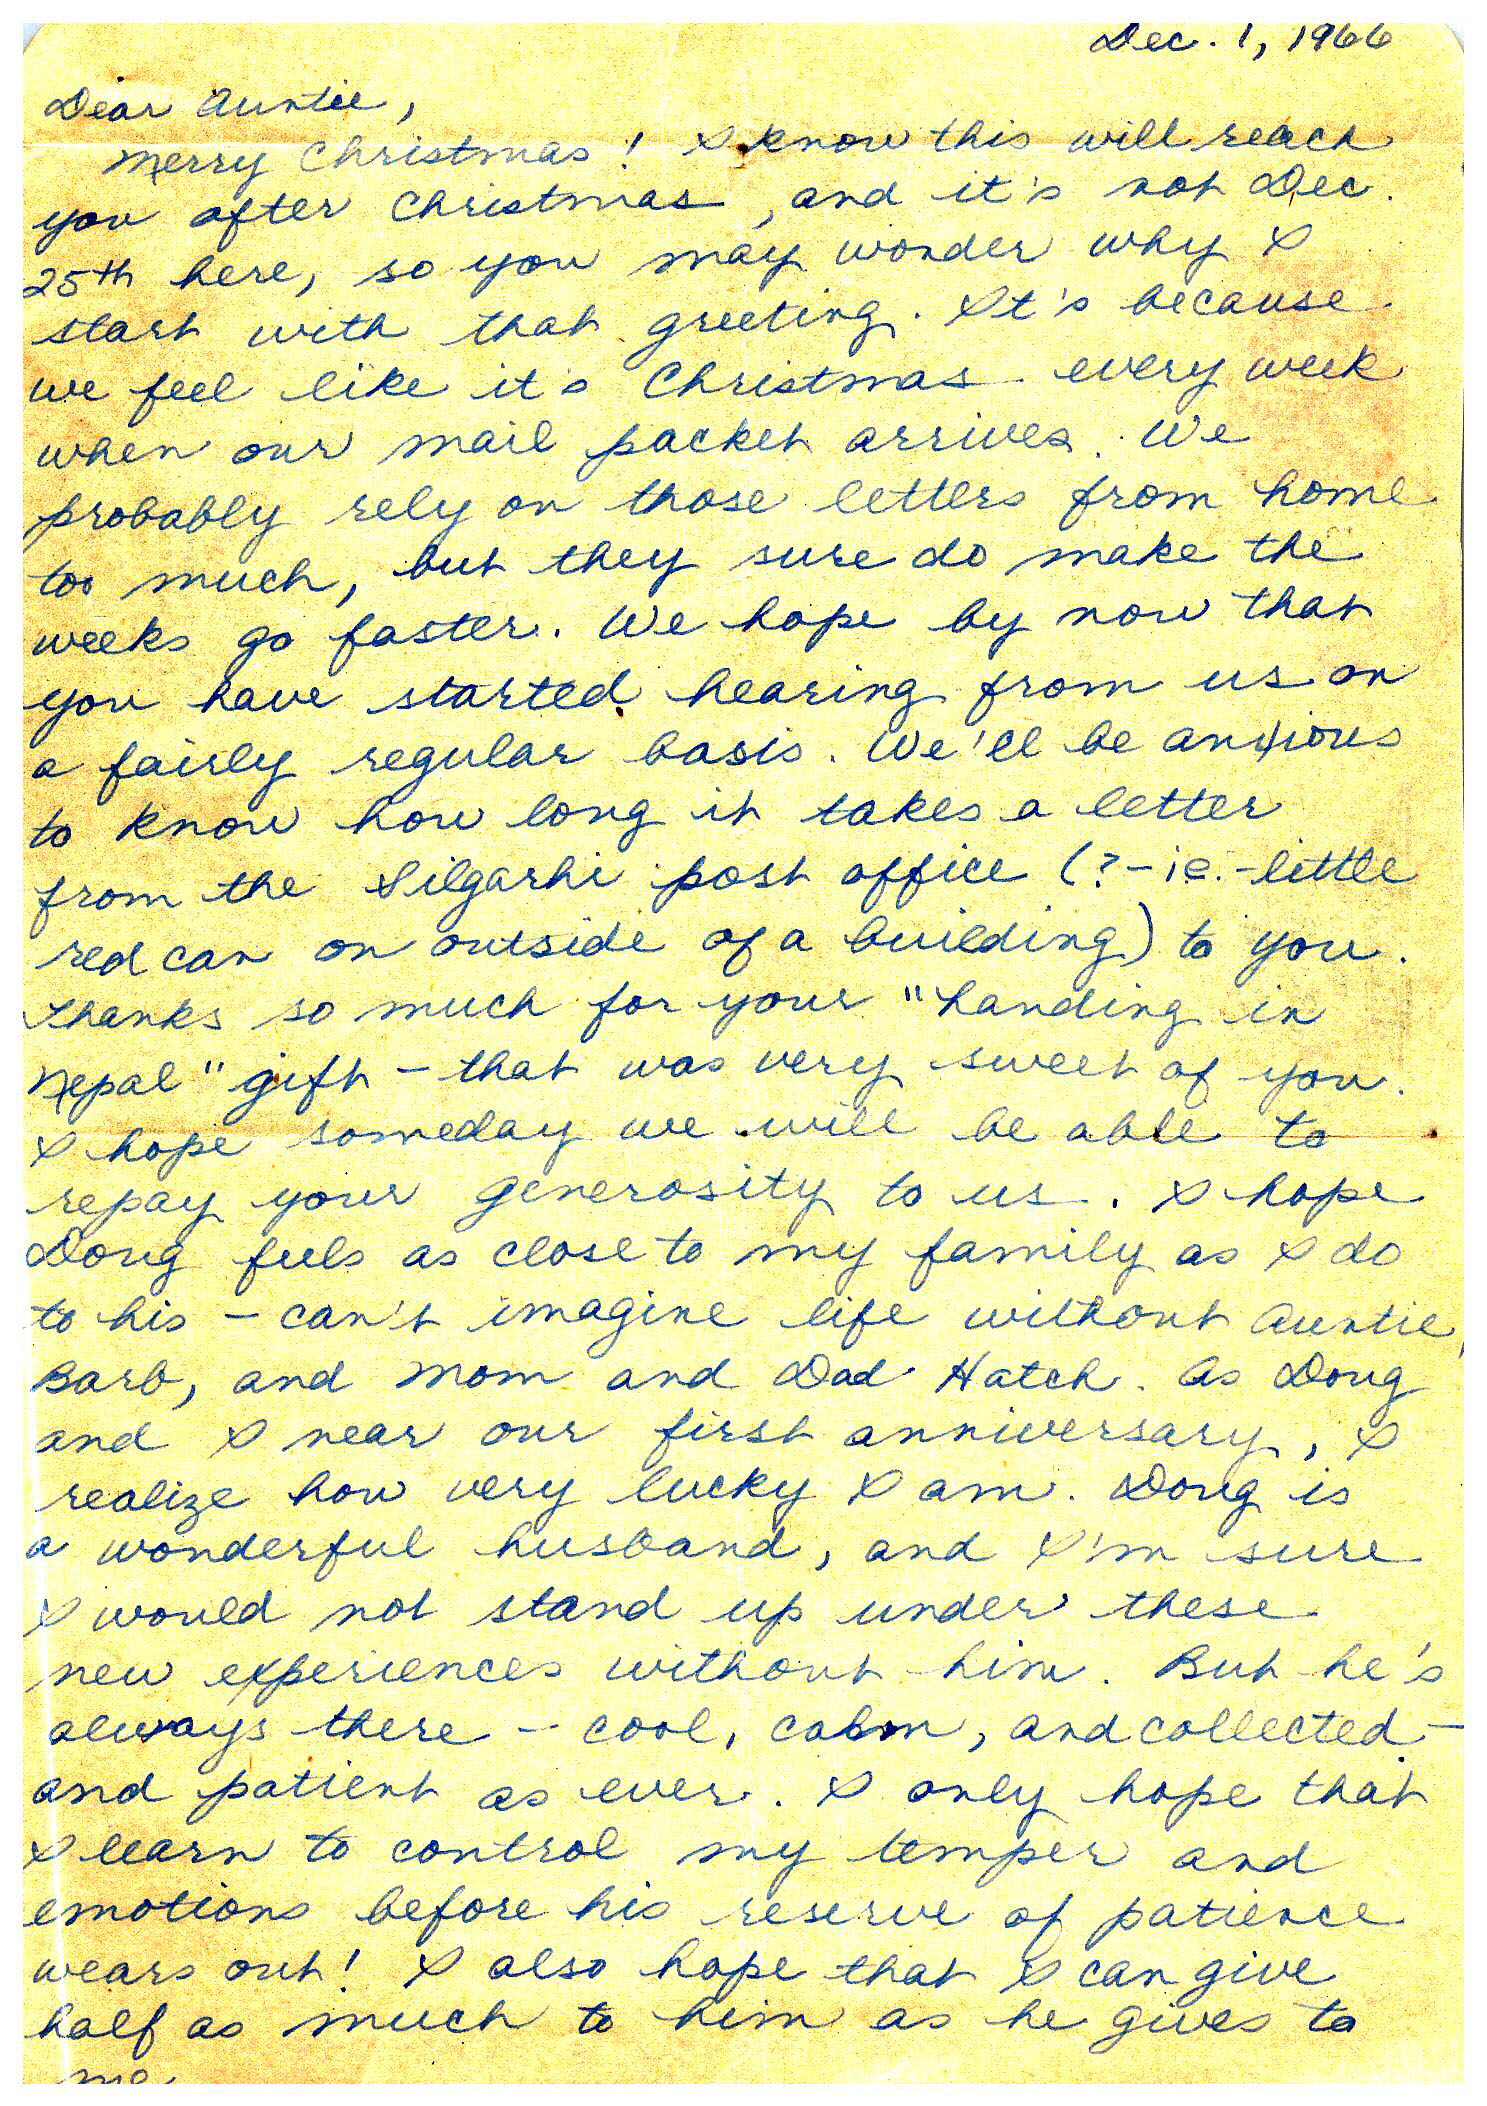 Dec. 1, 1966
Dear Auntie,
Merry Christmas! I know this will reach
you after Christmas, and it's not Dec.
25th here, so you may wonder why I
start with that greeting. It's because
we feel like it's Christmas every week
when our mail packet arrives. We
probably rely on those letters from home
too much, but they sure do make the
weeks go faster. We hope by now that
you have started hearing from us on
a fairly regular basis. We'll be anxious
to know how long it takes a letter
from the Silgarhi post office (?-ie.-little
red can on outside of a building) to you.
Thanks so much for your "handing in
Nepal" gift - that was very sweet of you.
I hope someday we will be able to
repay your generosity to us. I hope
Doug feels as close to my family as I do
to his - can't imagine life without Auntie,
Barb, and Mom and Dad Hatch. As Doug
and I near our first anniversary, I
realize how very lucky I am. Doug is
a wonderful husband, and I'm sure
I would not stand up under these
new experiences without him. But he's
always there - cool, calm, and collected -
and patient as ever. I only hope that
I learn to control my temper and
emotions before his reserve of patience
wears out! I also hope that I can give
half as much to him as he gives to
me